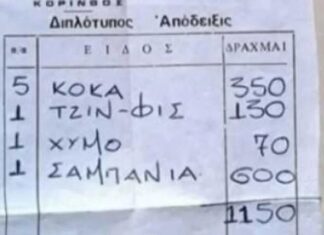 ΚΟΡΙΝΘΟΣ
Διπλότυπος Ἀπόδειξις
ΕΙΔΟΣ ΔΡΑΧΜΑΙ
5 ΚΟΚΑ 350
1 ΤΖΙΝ-ΦΙΣ 130
1 ΧΥΜΟ 70
1 ΣΑΜΠΑΝΙΑ 600
1150